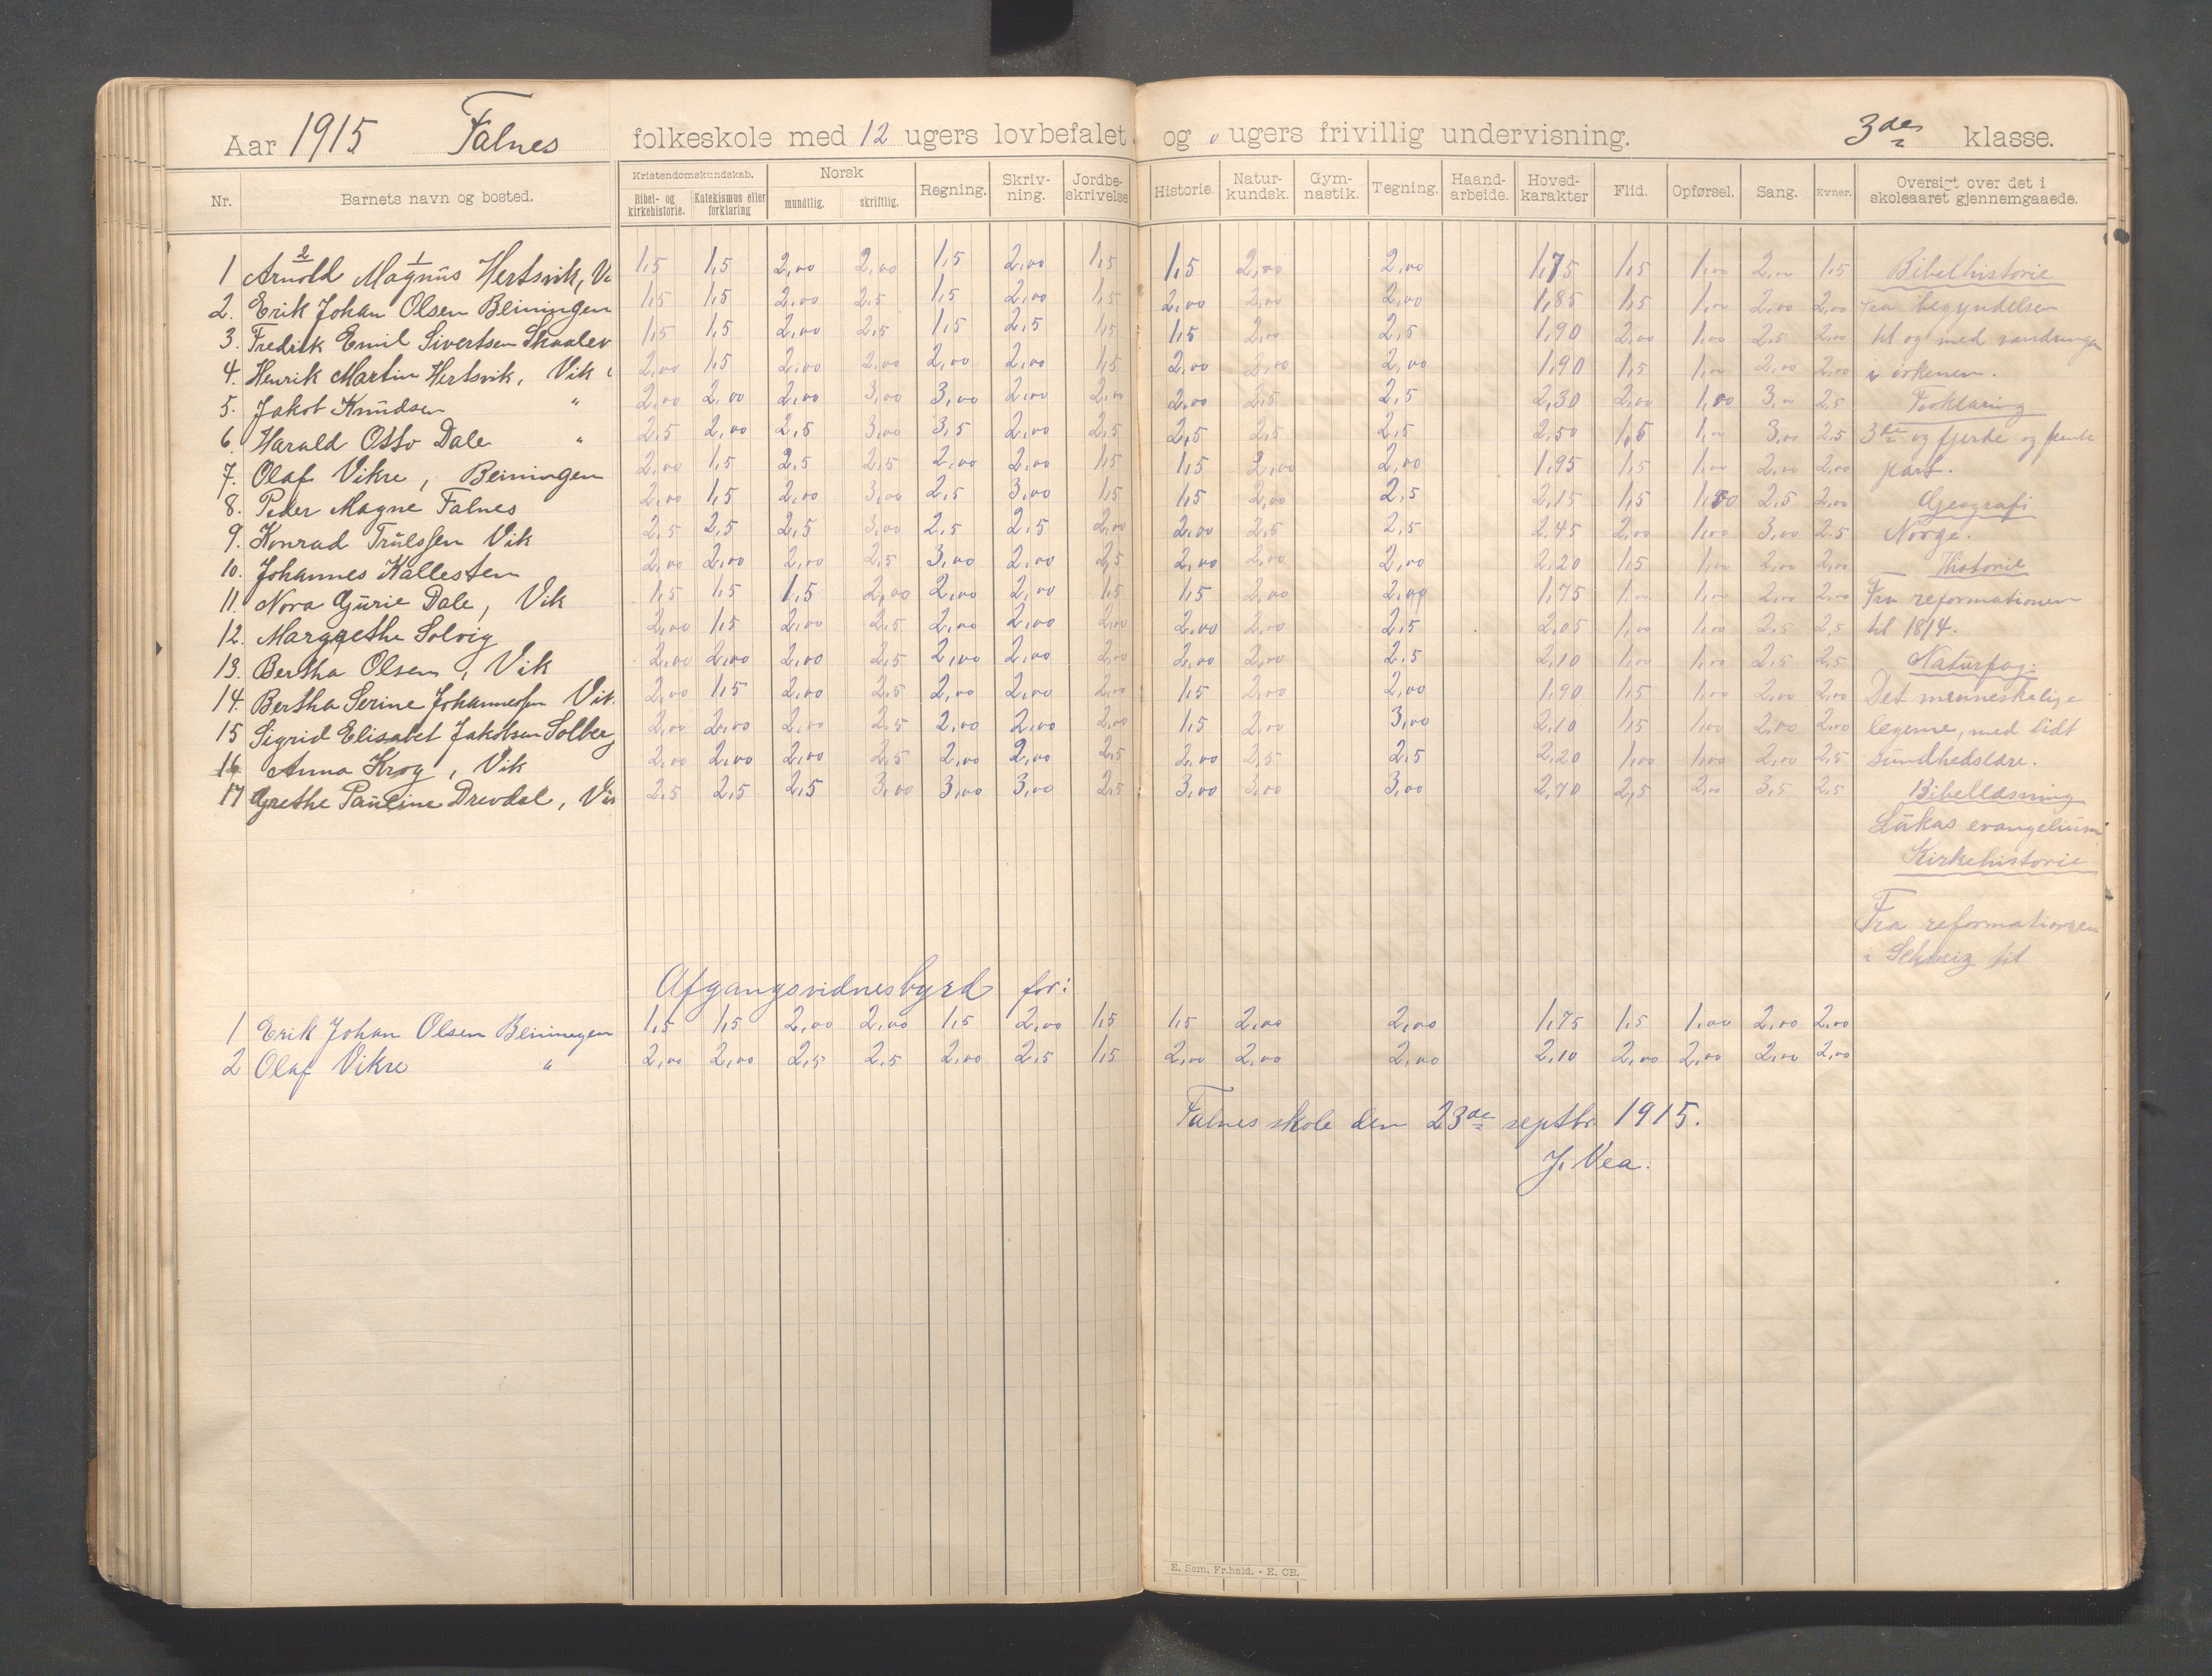 Aar 1915 Falnes folkeskole med 12 ugers lovbefalet og 0 ugers frivillig undervisning. 3de klasse.
Nr. Barnets navn og bosted. Kristendomskundskab. Bibel- og kirkehistorie. Katekismus eller forklaring Norsk mundtlig. skriftlig. Regning. Skriv-ning. Jordbe-skrivelse Historie. Natur-kundsk. Gym-nastik. Tegning. Haand-arbeide. Hoved-karakter Flid. Opførsel. Sang. Evner. Oversigt over det i skoleaaret gjennemgaaede.
2 1
1 Arnold Magnus Hertsvik, 1,5 1,5 2,00 2,00 1,5 2,00 1,5 1,5 2,00 2,00 1,75 1,5 1,00 2,00 1,5 Bibelhistorie
2. Erik Johan Olsen Beiningen 1,5 1,5 2,00 2,5 1,5 2,00 1,5 2,00 2,00 2,00 1,85 1,5 1,00 2,00 2,00 Fra begyndelsen
3. Fredrik Emil Sivertsen Skaalev 1,5 1,5 2,00 2,5 1,5 2,5 1,5 1,5 2,00 2,5 1,90 2,00 1,00 2,5 2,00 til og med vandringen
4. Henrik Martin Hertsvik, Vik 2,00 1,5 2,00 2,00 2,00 2,00 1,5 2,00 2,00 2,00 1,90 1,5 1,00 2,00 2,00 i ørkenen.
5. Jakob Knudsen " 2,00 2,00 2,00 3,00 3,00 2,00 2,00 2,00 2,5 2,5 2,30 2,00 1,00 3,00 2,5 Forklaring
6. Harald Otto Dale " 2,5 2,00 2,5 3,00 3,5 2,00 2,5 2,5 2,5 2,5 2,50 1,5 1,00 3,00 2,5 3de og fjerde og femte
7. Olaf Vikre, Beiningen 2,00 1,5 2,5 2,5 2,00 2,00 1,5 1,5 2,00 2,00 1,95 1,5 1,00 2,00 2,00 part.
8. Peder Magne Falnes 2,00 1,5 2,00 3,00 2,5 3,00 1,5 1,5 2,00 2,5 2,15 1,5 1,50 2,5 2,00 Geografi
9. Konrad Trulssen Vik 2,5 2,5 2,5 3,00 2,5 2,5 2,00 2,00 2,5 2,5 2,45 2,00 1,00 3,00 2,5 Norge.
10. Johannes Kallesten 2,00 2,00 2,00 2,5 3,00 2,00 2,5 2,00 2,00 2,00 2,20 1,5 1,00 2,00 2,00 Historie
11. Nora Gurie Dale, Vik 1,5 1,5 1,5 2,00 2,00 2,00 1,5 1,5 2,00 2,00 1,75 1,00 1,00 2,00 2,00 Fra reformationen
12. Margrethe Solvig 2,00 1,5 2,00 2,5 2,00 2,00 2,00 2,00 2,00 2,5 2,05 1,00 1,00 2,5 2,5 til 1814.
13. Bertha Olsen, Vik 2,00 2,00 2,00 2,5 2,00 2,00 2,00 2,00 2,00 2,5 2,10 1,00 1,00 2,5 2,5 Naturfag:
14. Bertha Serine Johannessen Vik 2,00 1,5 2,00 2,5 2,00 2,00 2,00 1,5 2,00 2,00 1,90 1,5 1,00 2,00 2,00 Det menneskelige
15 Sigrid Elisabet Jakobsen Solberg 2,00 2,00 2,00 2,5 2,00 2,00 2,00 1,5 2,00 3,00 2,10 1,5 1,00 2,00 2,00 legeme, med lidt
16. Anna Krog, Vik 2,00 2,00 2,00 2,5 2,00 2,00 2,5 2,00 2,5 2,5 2,20 1,00 1,00 2,00 2,5 sundhedslære.
17 Grethe Pauline Drevdal, Vik 2,5 2,5 2,5 3,00 3,00 3,00 2,5 3,00 3,00 3,00 2,70 2,5 2,00 3,5 2,5 Bibellæsning
Lukas evangelium
Kirkehistorie
Fra reformationen
i Schweiz til
Afgangsvidnesbyrd for:
1 Erik Johan Olsen Beiningen 1,5 1,5 2,00 2,00 1,5 2,00 1,5 1,5 2,00 2,00 1,75 1,5 1,00 2,00 2,00
2 Olaf Vikre " 2,00 2,00 2,5 2,5 2,00 2,5 1,5 2,00 2,00 2,00 2,10 2,00 2,00 2,00 2,00
Falnes skole den 23de septbr 1915.
J. Vea.
E. Sem, Fr.hald. - E. CB.